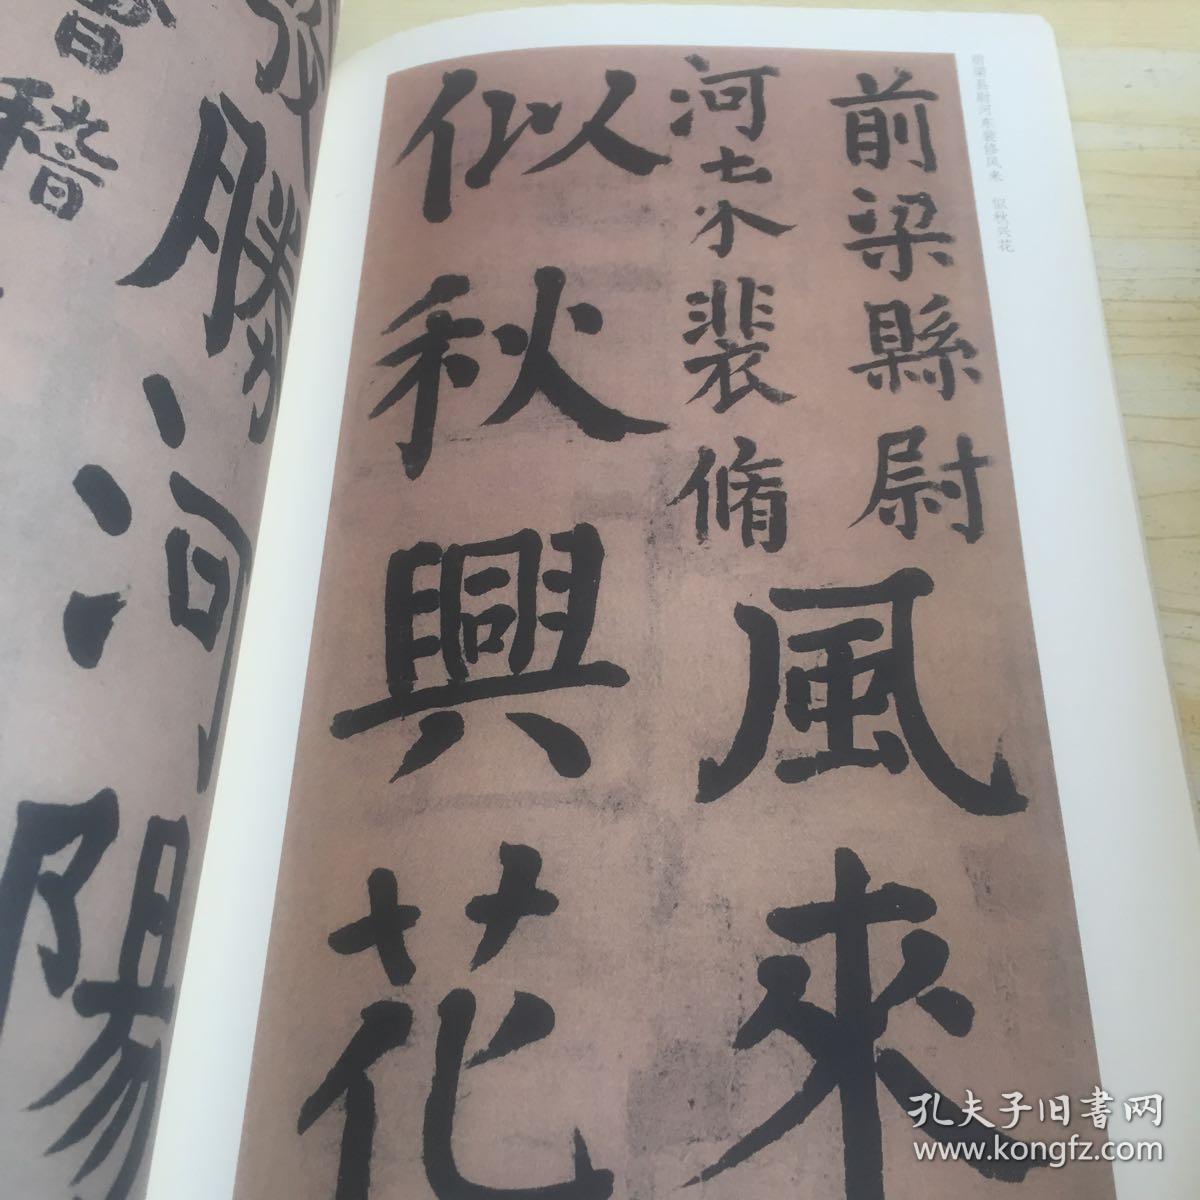 前梁县尉河东裴修风来 似秋兴花
前梁縣尉
風来
河东裴脩
似秋興花
會稽
勝河陽
孔夫子旧书网
www.kongfz.com